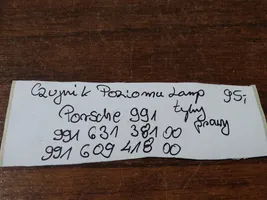 Czujnik Poziomu Lamp 95,-
Porsche 991 tylny
991 631 381 00 prawy
991 609 418 00